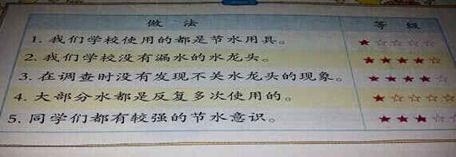 做法 等级
1. 我们学校使用的都是节水用具。 ★☆☆☆☆
2. 我们学校没有漏水的水龙头。 ★★★★☆
3. 在调查时没有发现不关水龙头的现象。 ★★★★☆
4. 大部分水都是反复多次使用的。 ★☆☆☆☆
5. 同学们都有较强的节水意识。 ★★★